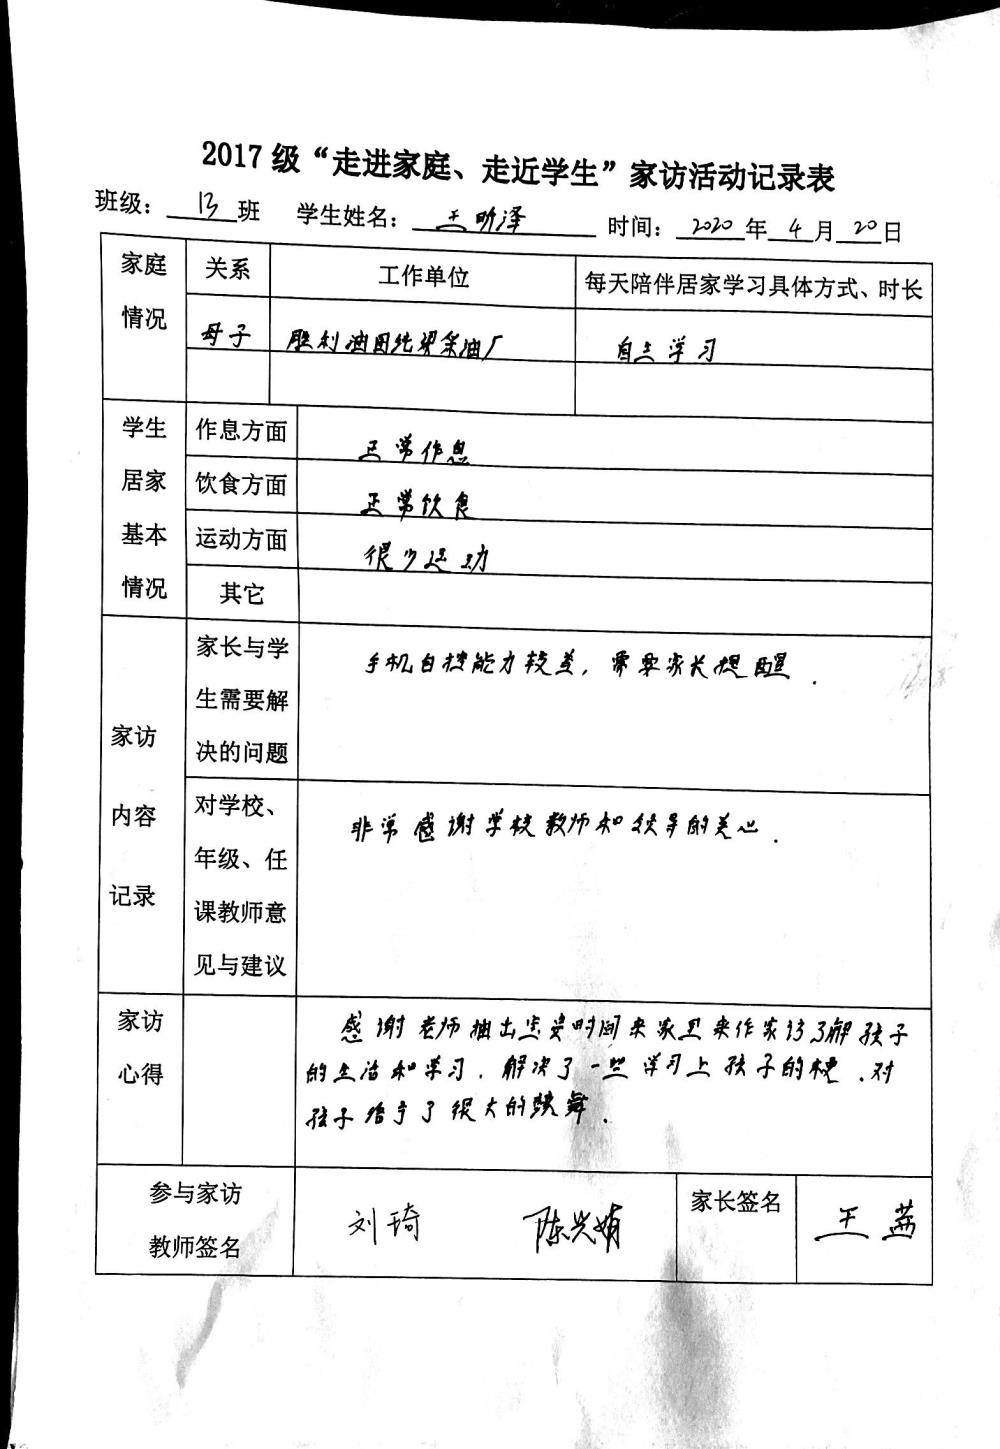 2017级“走进家庭、走近学生”家访活动记录表
班级：13班 学生姓名：王昕泽 时间：2020年4月20日
家庭情况 关系 工作单位 每天陪伴居家学习具体方式、时长
母子 胜利油田纯梁采油厂 自主学习
学生居家基本情况
作息方面 正常作息
饮食方面 正常饮食
运动方面 很少运动
其它
家访内容记录
家长与学生需要解决的问题 手机自控能力较差，需要家长提醒．
对学校、年级、任课教师意见与建议 非常感谢学校教师和领导的关心．
家访心得
感谢老师抽出宝贵时间来家里来作家访了解孩子
的生活和学习．解决了一些学习上孩子的 ．对
孩子给予了很大的鼓舞．
参与家访教师签名 刘琦 陈兴娟 家长签名 王茜